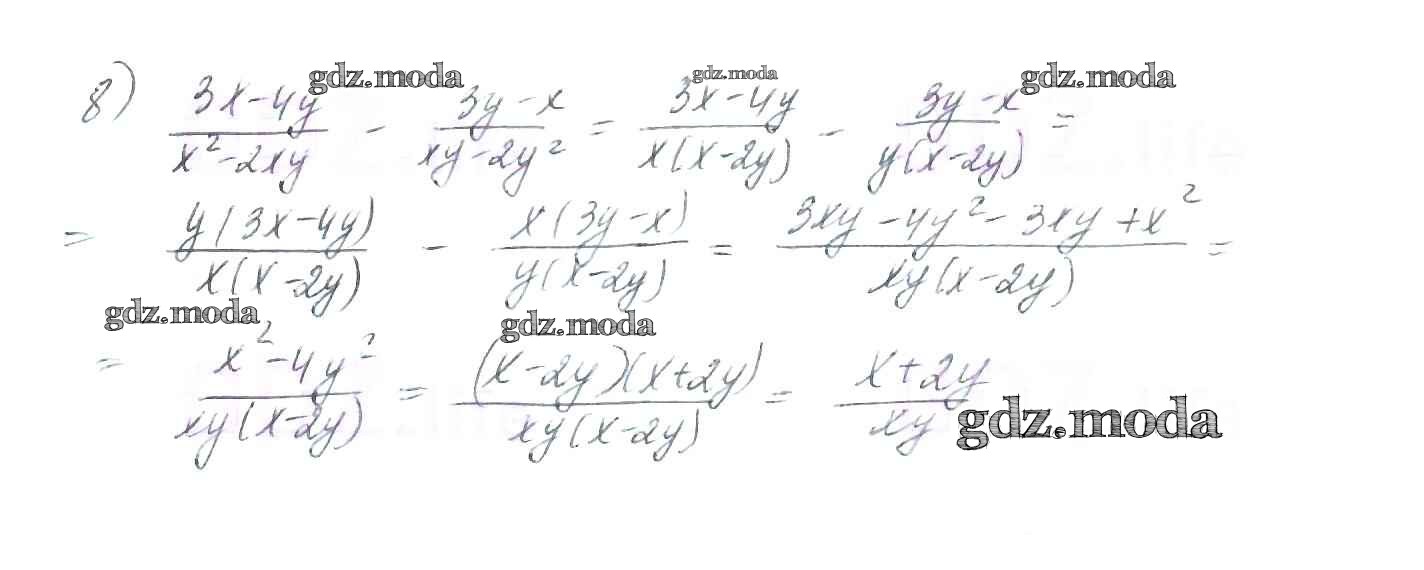 8) (3x-4y)/(x²-2xy) - (3y-x)/(xy-2y²) = (3x-4y)/(x(x-2y)) - (3y-x)/(y(x-2y)) =
= y(3x-4y)/(x(x-2y)) - x(3y-x)/(y(x-2y)) = (3xy-4y²-3xy+x²)/(xy(x-2y)) =
= (x²-4y²)/(xy(x-2y)) = (x-2y)(x+2y)/(xy(x-2y)) = (x+2y)/(xy)
gdz.moda
gdz.moda
gdz.moda
gdz.moda
gdz.moda
gdz.moda